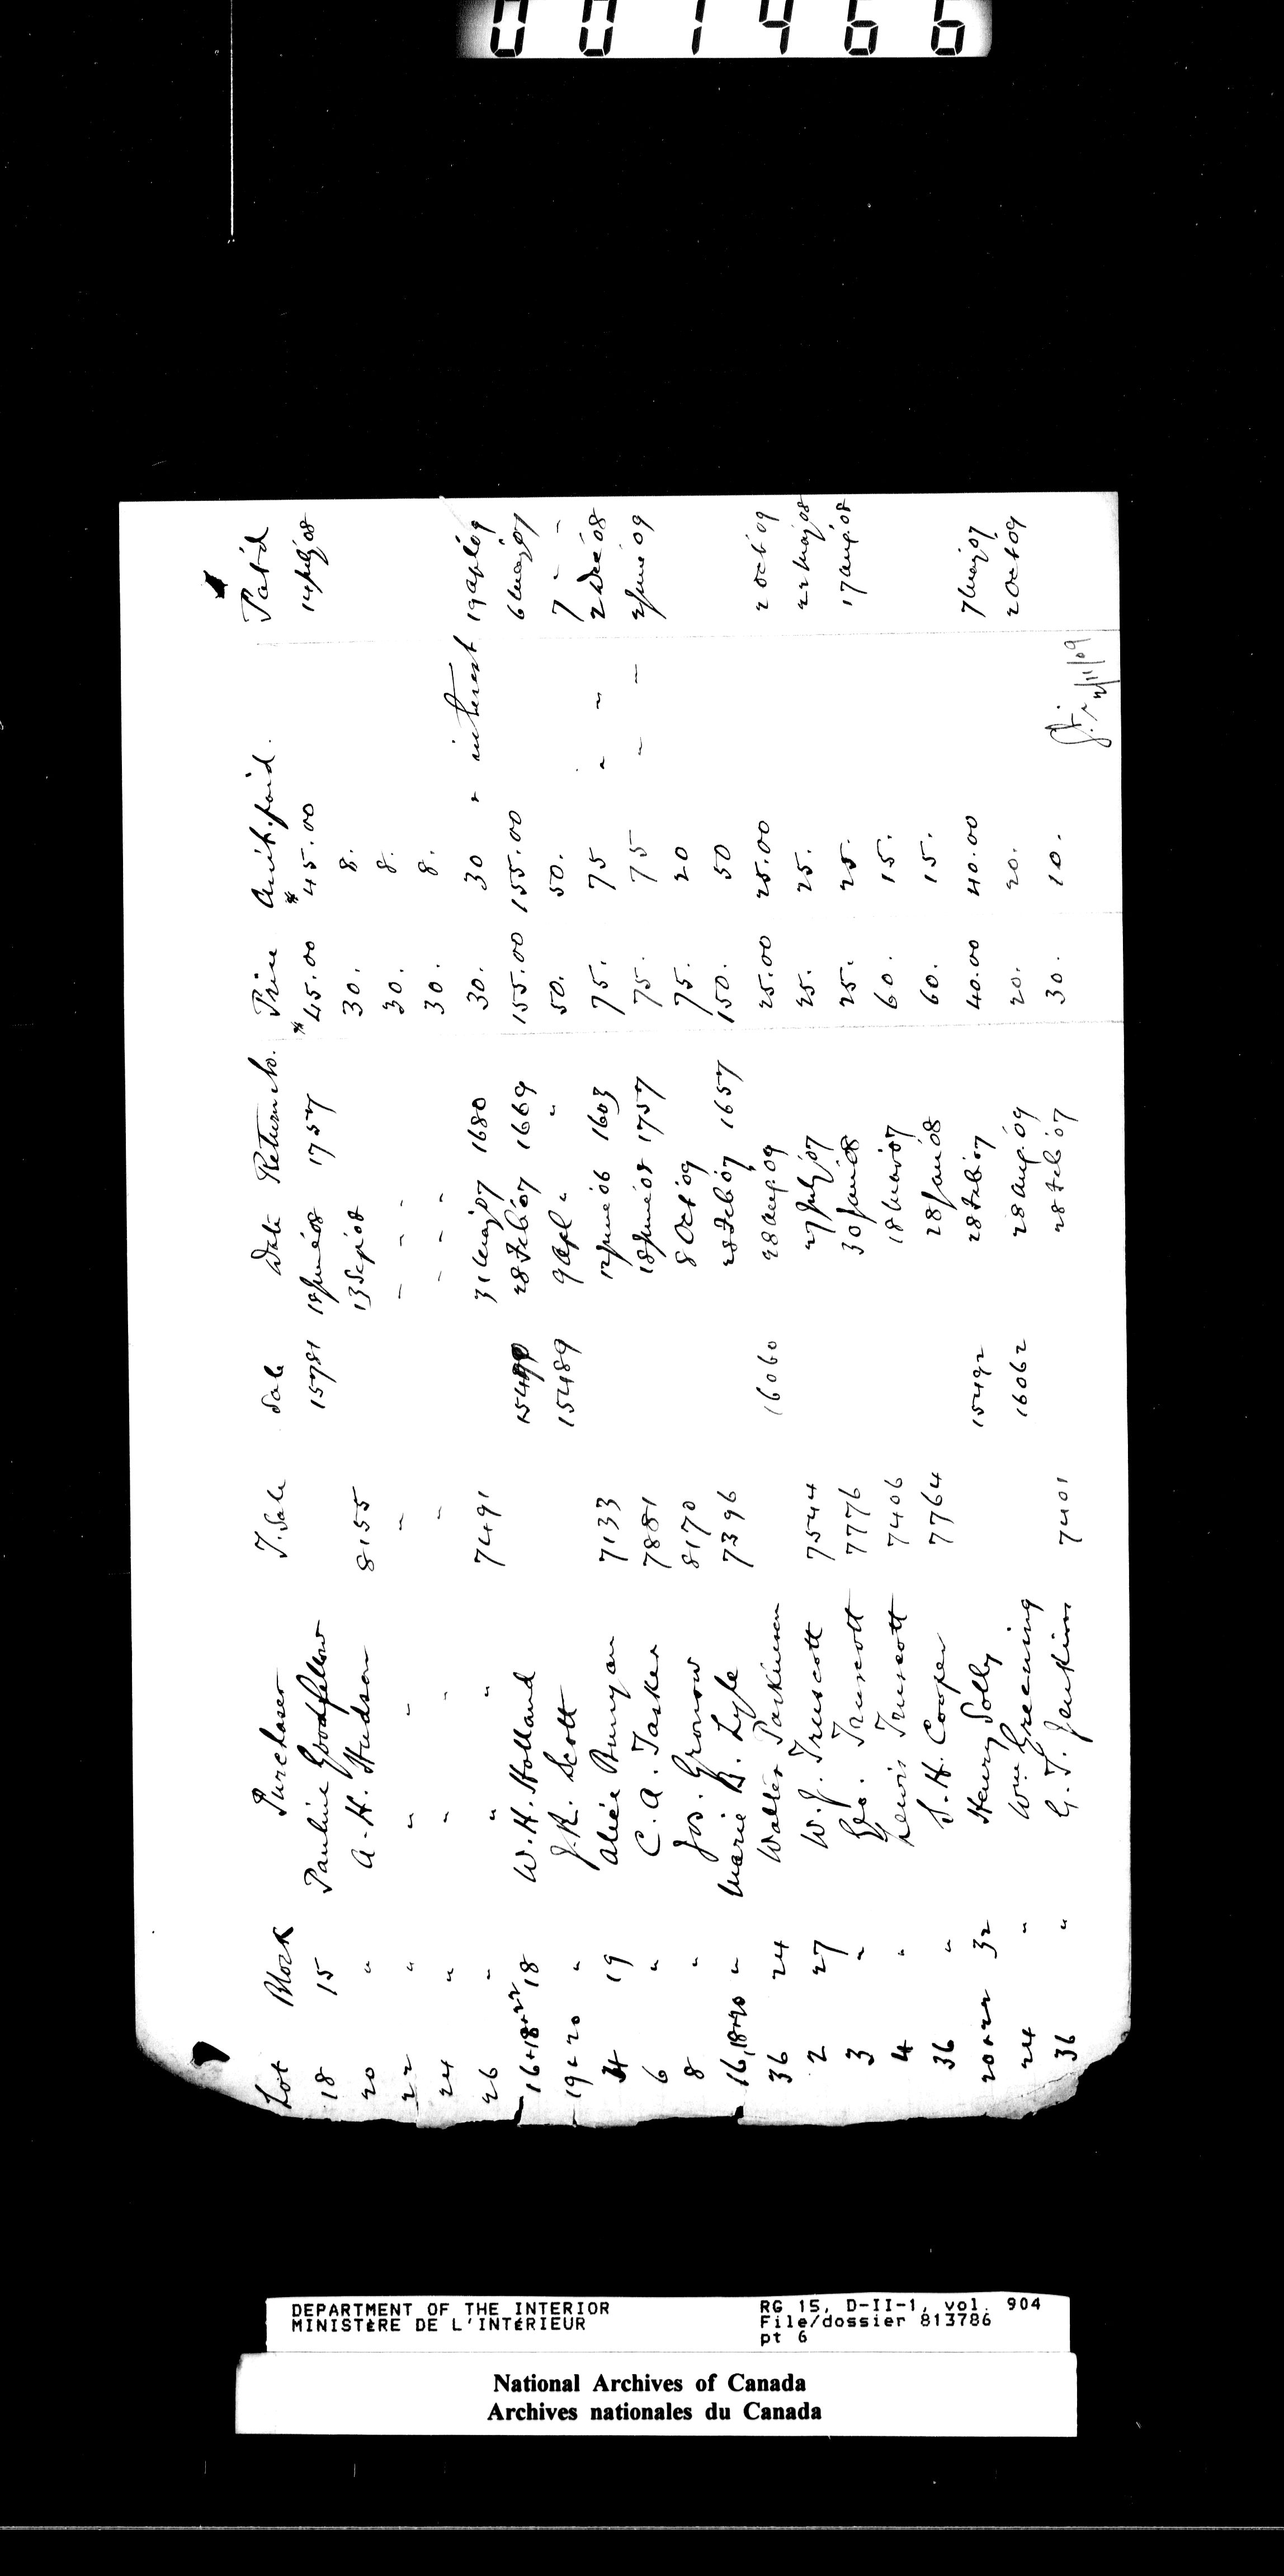 001466
Lot Block Purchaser T. Sale Sale Date Return No. Price Amt. paid. Pat'd
18 15 Pauline Goodfellow 15781 18 June '08 1757 $45.00 $45.00 14 July '08
20 " A. H. Hudson 8155 13 Sep '08 30. 8.
22 " " " " " " 30. 8.
24 " " " " " " 30. 8.
26 " " " 7491 31 May '07 1680 30. 30 + interest 19 Apl '09
16+18+22 18 W. H. Holland 28 Feb '07 1669 155.00 155.00 6 May '07
19+20 " J. R. Scott 15489 9 Apl " " 50. 50. 7 " "
4 19 Alice Bunyan 7133 12 June '06 1603 75. 75 " " 2 Dec '08
6 " C. A. Tasker 7881 18 June '08 1757 75. 75 " " 2 June '09
8 " Jos. Gronow 8170 8 Oct '09 75. 20
16, 18+20 " Marie B. Lyle 7396 28 Feb '07 1657 150. 50
36 24 Walter Parkinson 16060 28 Aug. 09 25.00 25.00 2 Oct '09
2 27 W. J. Truscott 7544 27 July '07 25. 25. 22 May '08
3 " Geo. Truscott 7776 30 Jan '08 25. 25. 17 Aug. '08
4 " Lewis Truscott 7406 18 Mar '07 60. 15.
36 " S. H. Cooper 7764 28 Jan '08 60. 15.
20+22 32 Henry Solly 15492 28 Feb '07 40.00 40.00 7 May '07
24 " Wm. Greening 16062 28 Aug. '09 20. 20. 2 Oct '09
36 " G. T. Jenkins 7401 28 Feb '07 30. 10.
2/11/09
DEPARTMENT OF THE INTERIOR RG 15, D-II-1, vol. 904
MINISTÈRE DE L'INTÉRIEUR File/dossier 813786
pt 6
National Archives of Canada
Archives nationales du Canada